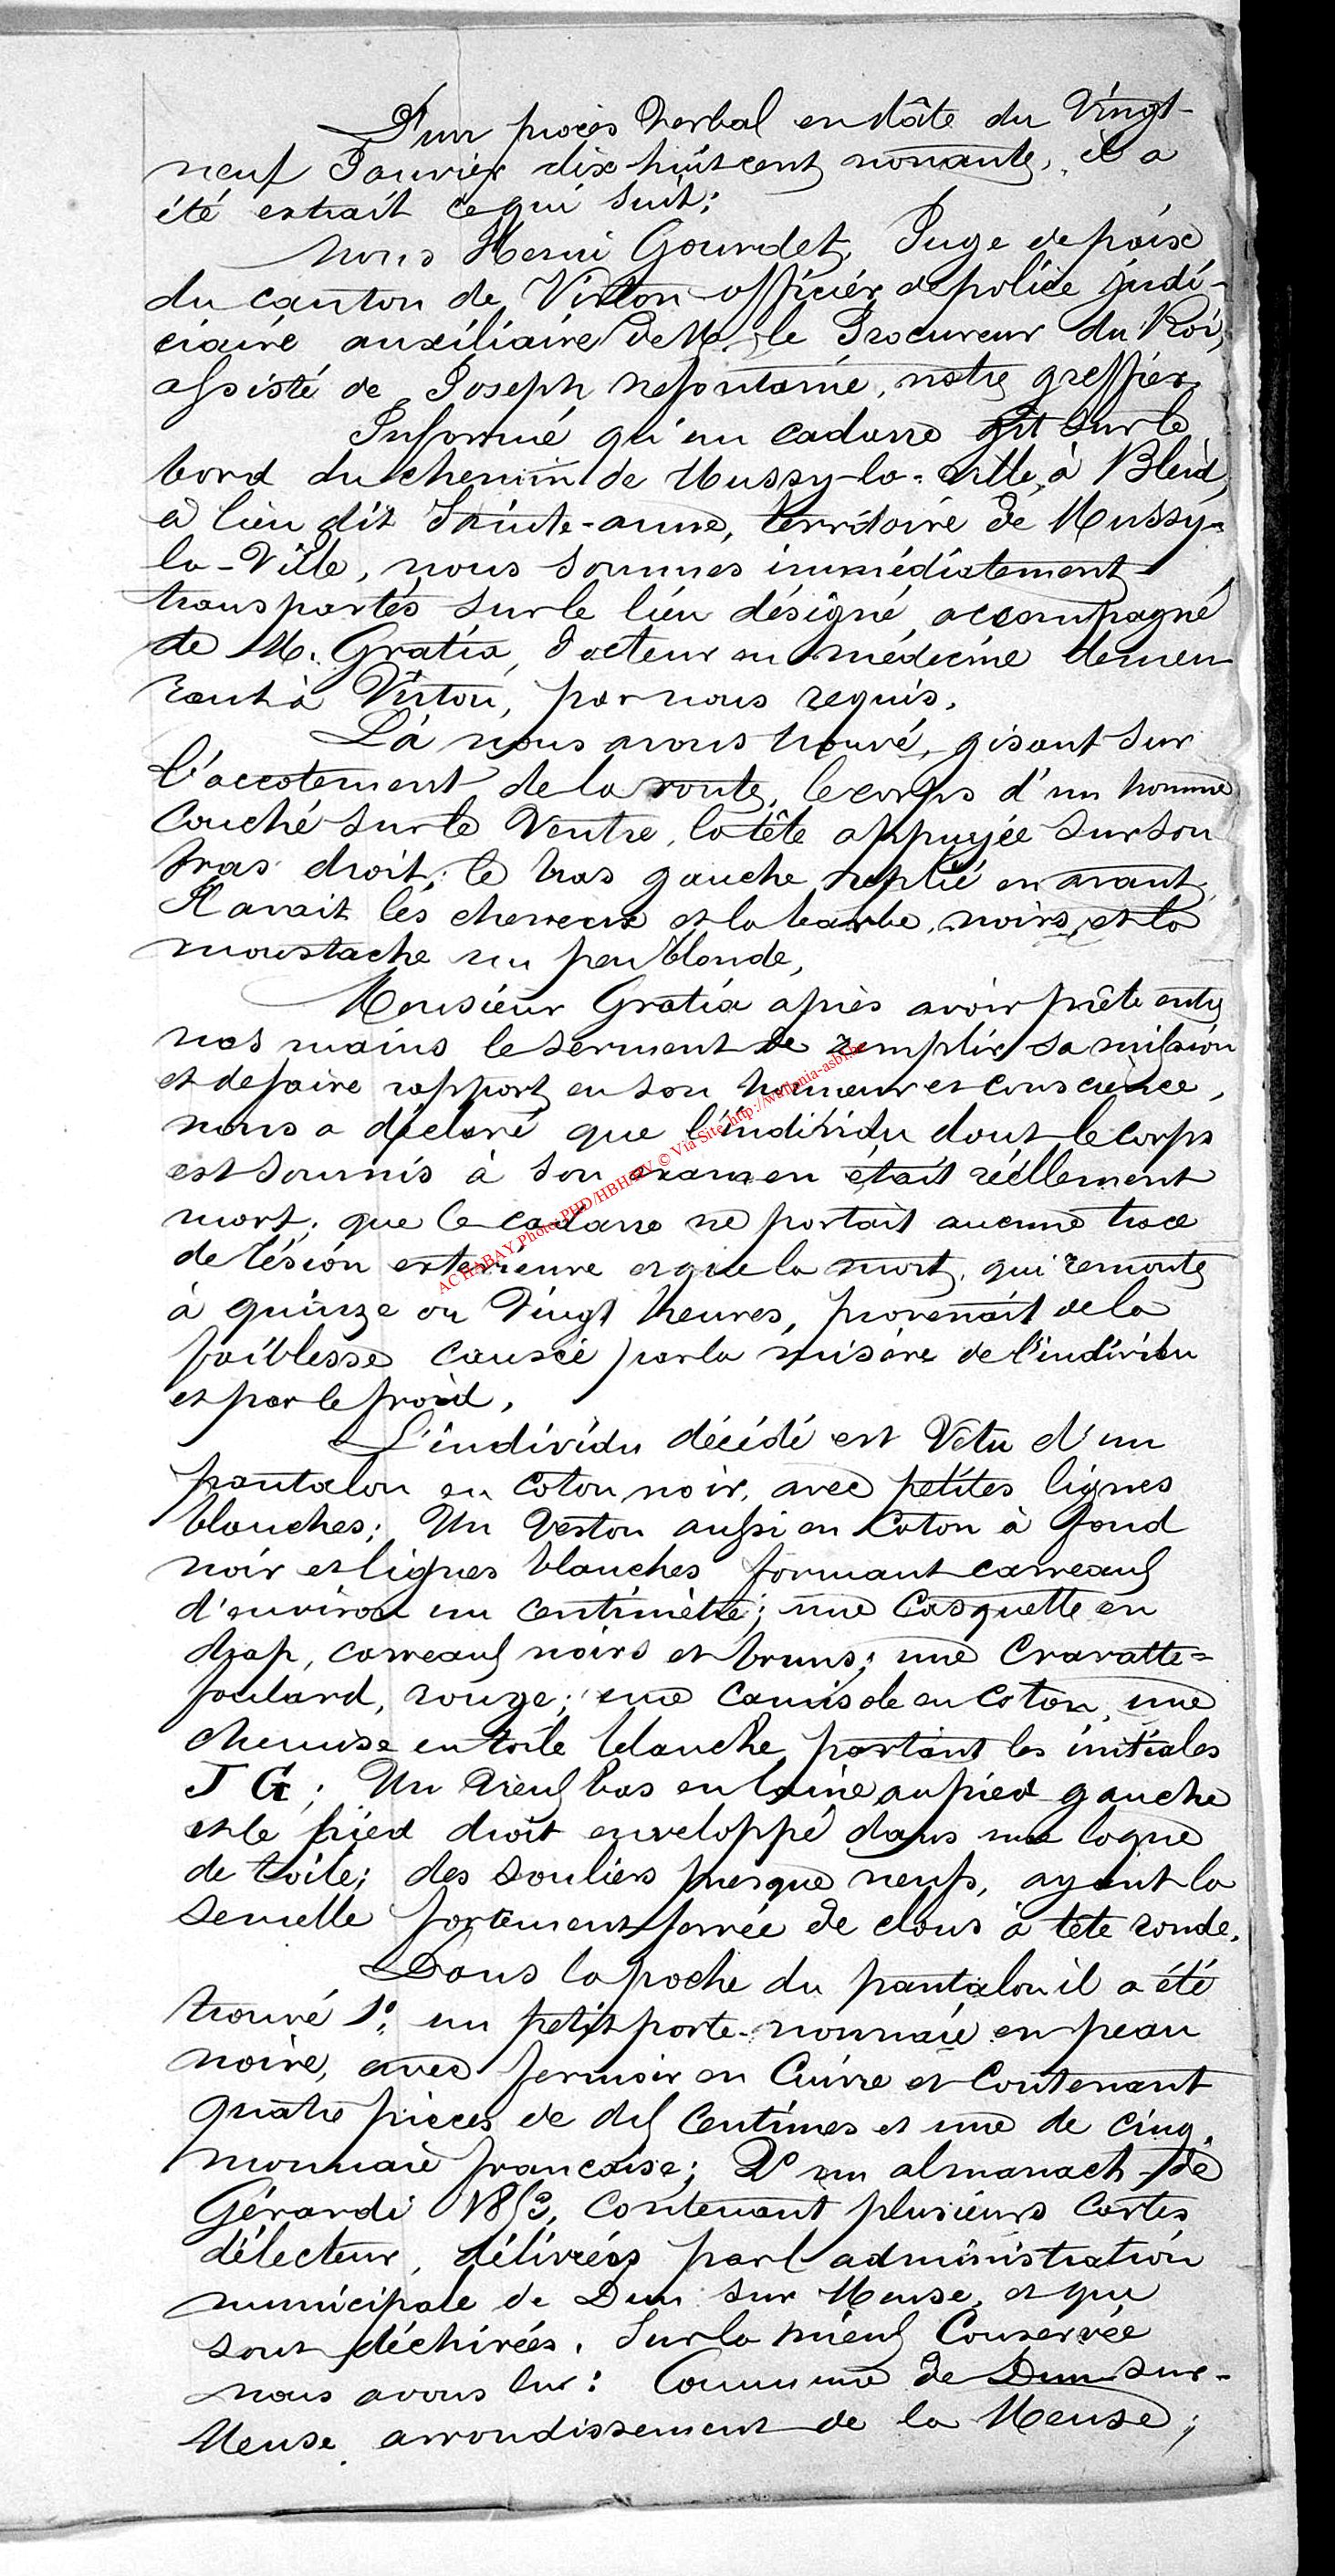 D'un procès verbal en dâte du Vingt-
neuf Janvier dix-huit cent nonante, il a
été extrait ce qui suit:
Nous Henri Gourdet, Juge de paix
du canton de Virton officier de police judi-
ciaire auxiliaire De M. le Procureur du Roi,
assisté de Joseph Nefontaine, notre greffier.
Informé qu'un cadavre gît sur le
bord du chemin de Mussy-la-Ville, à Bleid,
a lieu dit Sainte-anne, territoire de Mussy-
la-Ville, nous sommes immédiatement
transportés sur le lieu désigné, accompagné
de M. Gratia, docteur en médecine demeu
rant à Virton, par nous requis.
Là nous avons trouvé, gisant sur
l'accotement de la route, le corps d'un homme
Couché sur le Ventre, la tête appuyée sur son
bras droit, le bras gauche replié en avant
Il avait les cheveux et la barbe, noirs, et la
moustache un peu blonde,
Monsieur Gratia après avoir prêté entre
nos mains le serment de remplir sa mission
et de faire rapport en son honneur et conscience,
nous a déclaré que l'individu dont le corps
est soumis à son examen était réellement
mort, que le cadavre ne portait aucune trace
de lésion exterieure et que la mort, qui remonte
à quinze ou Vingt heures, provenait de la
faiblesse causée par la misère de l'individu
et par le froid.
L'individu décédé est Vetu d'un
pantalon en coton noir, avec petites lignes
blanches; Un Veston aussi en Coton à fond
noir et lignes blanches formant carreaux
d'environ un centimètre; une Casquette en
drap, carreaux noirs et bruns; une Cravatte-
foulard, rouge; une camisole en coton, une
chemise en toile blanche, portant les initiales
J G; Un Vieux bas en laine au pied gauche
et le pied droit enveloppé dans une loque
de toile; des souliers presque neufs, ayant la
semelle fortement ferrée de clous à tête ronde.
Dans la poche du pantalon il a été
trouvé 1° un petit porte-monnaie en peau
noire, avec fermoir en Cuivre et Contenant
quatre pièces de dix Centimes et une de cinq,
monnaie française; 2° un almanach de
Gérardi, Contenant plusieurs Cartes
d'électeur, délivrées par l'administration
municipale de Dun sur Meuse, et qui
sont déchirées. Sur la mieux Conservée
nous avons lu: Commune de Dun-sur-
Meuse, arrondissement de la Meuse;
ACHABAY Photo: PHD/HBHABY © Via Site: http://wallonia-asbl.be